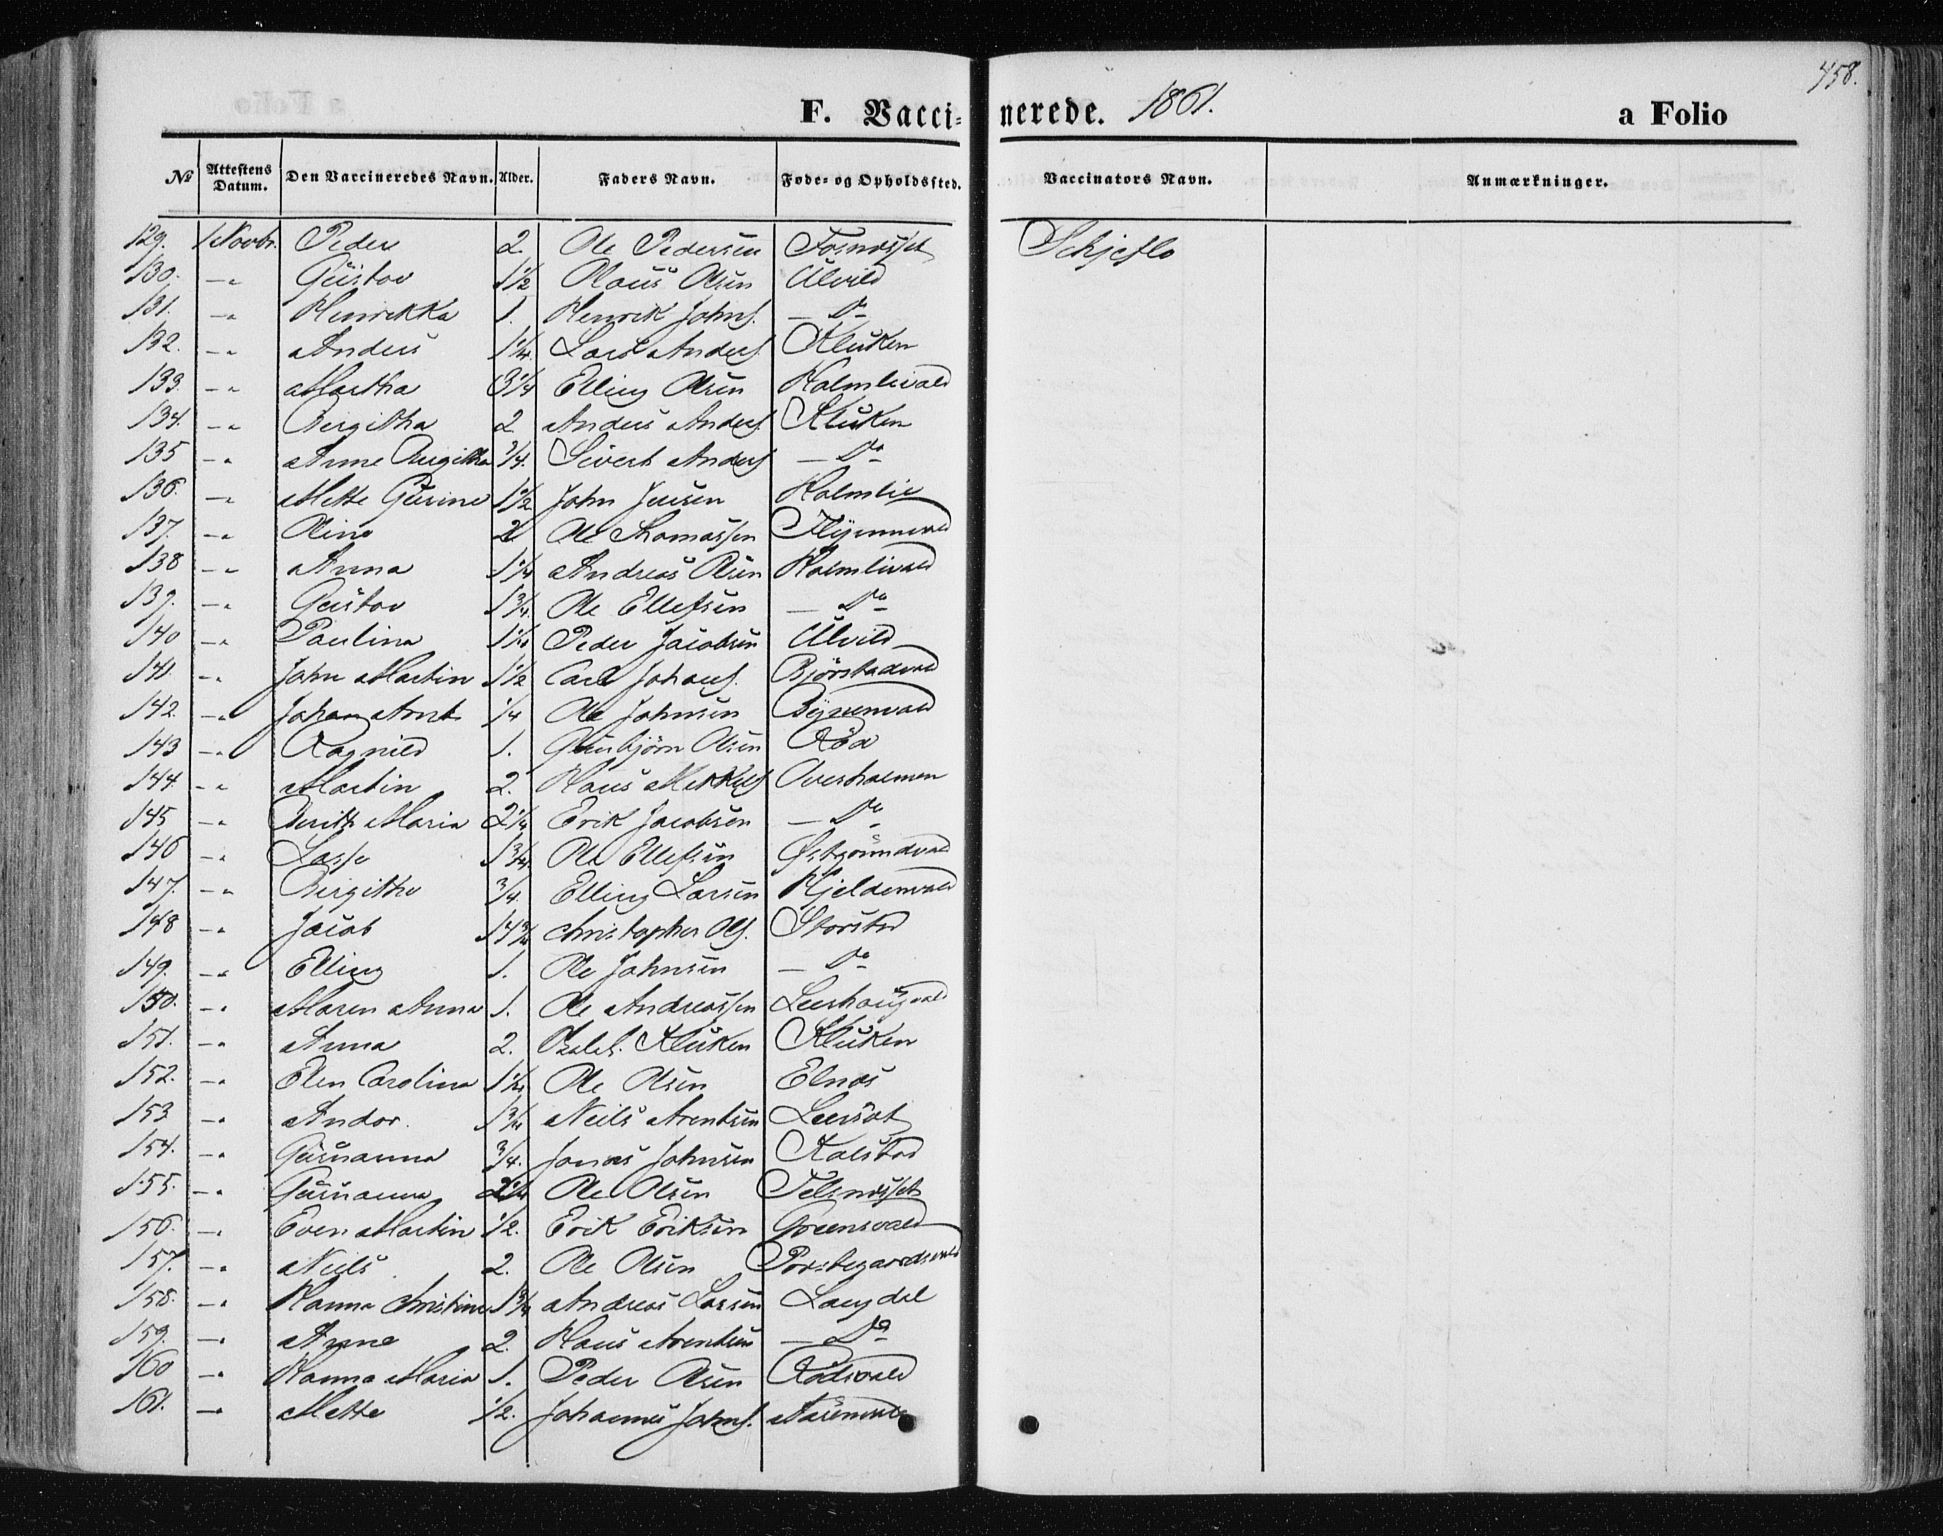 458.
F. Vaccinerede. 1861. a Folio
№ Attestens Datum. Den Vaccineredes Navn. Alder. Faders Navn. Føde- og Opholdssted. Vaccinators Navn. Anmærkninger.
129. 1 Novbr. Peder 2. Ole Pedersen Fosnæsset Schjeflo
130. -"- Gustav 1 1/2 Claus Olsen Ulvild
131. -"- Henrikka 1. Henrik Johns. - Do -
132. -"- Anders 1 1/4. Lars Anders. Kluken
133. -"- Martha 3 1/4 Elling Olsen Holmlivald
134. -"- Birgitha 2 Anders Anders. Kluken
135 -"- Anne Birgitha 3/4. Sivert Anders. - Do -
136. -"- Mette Gurine 1 1/2 John Jensen Holmlie
137. -"- Oline 2 Ole Thomassen
138 -"- Anna 1 1/4 Andreas Olsen Holmlivald
139. -"- Gustav 1 3/4. Ole Ellefsen - Do -
140 -"- Paulina 1 1/2 Peder Jacobsen Ulvild
141. -"- John Martin 1 1/2 Carl Johans. Bjørstadvald
142. -"- Johan Arnt 1/4 Ole Johnsen
143 -"- Ragnild 1. Gunbjørn Olsen Røa
144. -"- Martin 2. Hans Mikkels. Overholmen
145 -"- Berith Maria 2 1/4 Erik Jacobsen - Do -
146 -"- Lasse 1 3/4. Ole Ellefsen Østgrundvald
147. -"- Birgitha 3/4. Elling Larsen Hjeldenvald
148 -"- Jacob Christopher Ols. Storstad
149. -"- Elling 1. Ole Johnsen - Do -
150. -"- Maren Anna 1. Ole Andreassen Leerhaugvald
151. -"- Anna 2. Kluken Kluken
152. -"- Elen Carolina 1 1/4 Ole Olsen Elnæs
153 -"- Andor. 1 3/4 Neils Arentsen
154. -"- Gurianna 3/4. Jonas Johnsen Kalstad
155. -"- Gurianna 2 1/4 Ole Olsen Telsnæsset
156. -"- Even Martin 1/2. Erik Eriksen Grønsvald
157. -"- Neils 2. Ole Olsen
158. -"- Hanna Christine 1 3/4 Andreas Larsen Langdal
159. -"- Anne 2. Hans Arentsen - Do -
160 -"- Hanna Maria 1. Peder Olsen Rødsvald
161. -"- Mette 1/2. Johannes Johns.